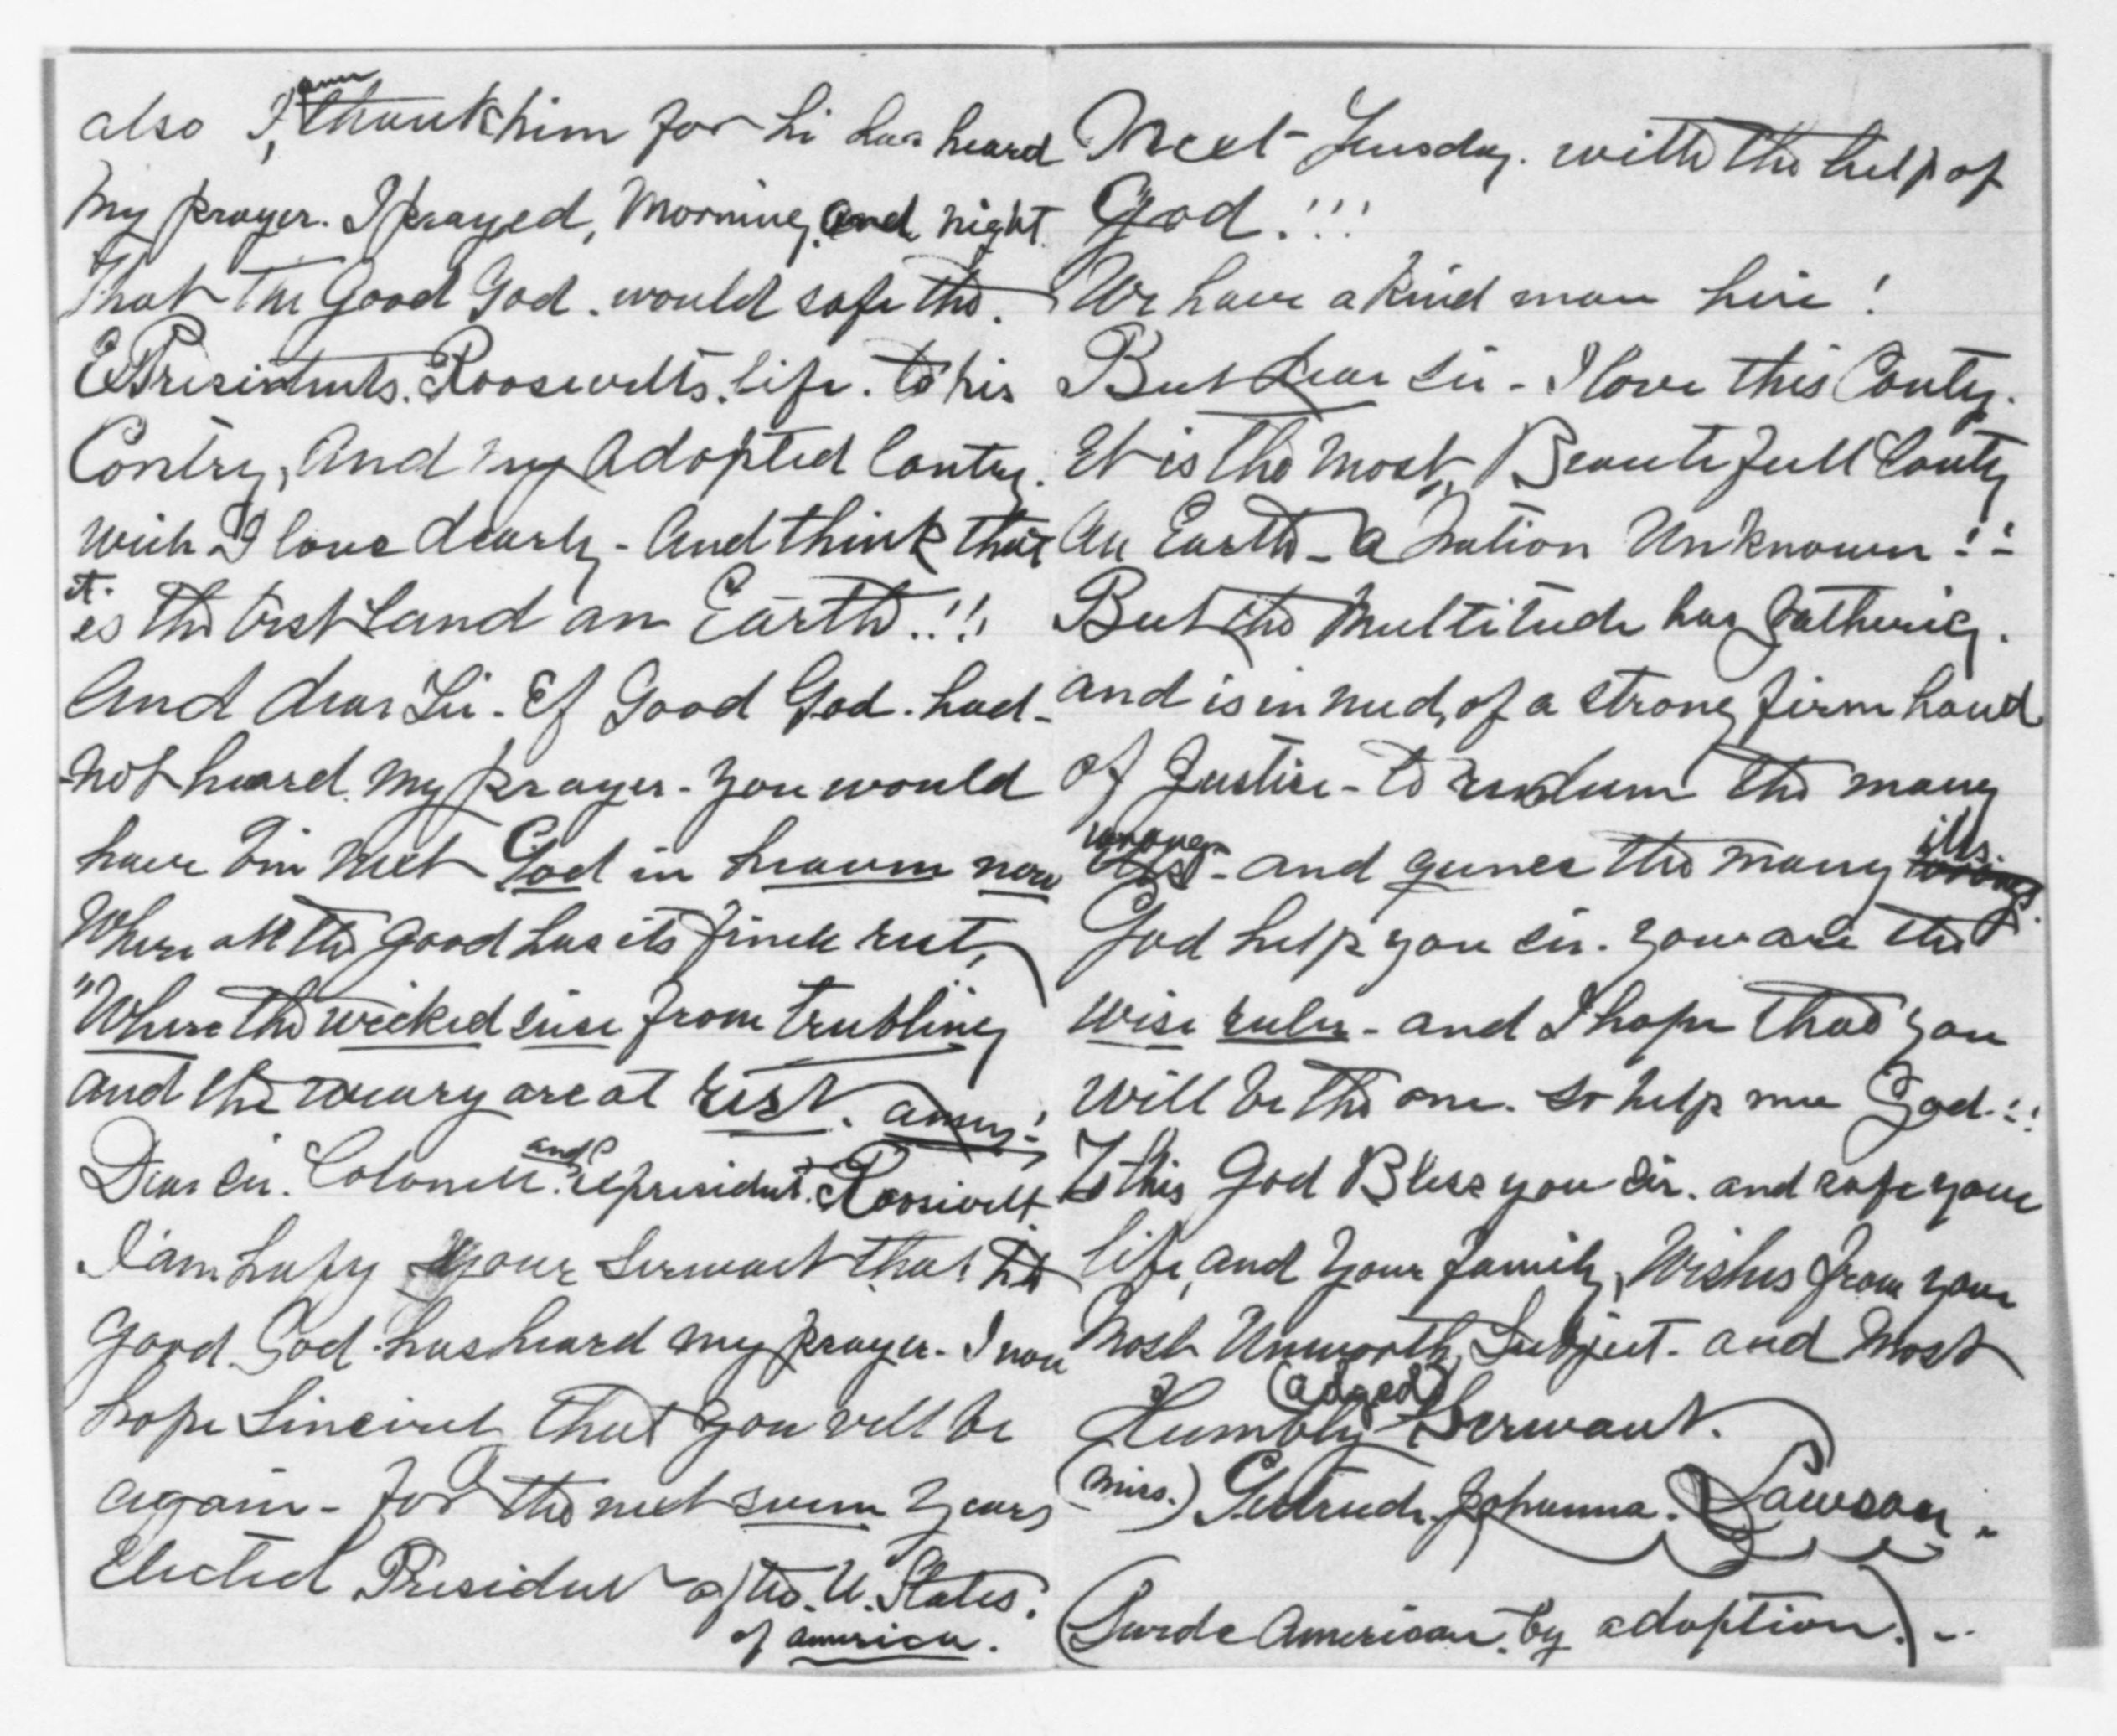 also I, amm thank him for hi has heard
My prayer. I prayed, Morning, and night.
That the Good God. would safe the.
ExPresidents. Roosewelts. life. to his
Contry, And my Adopted Contry.
wich I love dearly - And think that
it.
is the best Land an Earth..!!
And dear Sir. If Good God. had -
not heard. my prayer - you would
have bin met God in heaven now
Where all the good has its finele rest,
"Where the wicked sise from trubling
and the weary are at rest. amen!
Dear Sir. Colonell. and expresident. Roosiwelt.
I'am hapy your Serwant that the
Good God. has heard my prayer - I now
hope Sincirel that you vill be
again - for the next sewen years
Elected President of the. U. States.
of america.
Next Tuesday. with the help of
God.!!!
We have a kind man hire!
But dear Sir - I love this Conty.
Et is the Most, Beautefull Conty
An Earth - a Nation Unknown!!-
But the Multitude has gathering.
and is in need, of a strong firm hand
of Justise - to the many
wrongs - and the many ills.
God help you sir. you are the
wise ruler - and I hope that you
will be the one. so help me God.!!
To this God Bless you Sir. and safe your
life, and your family, Wishes from your
Most Unworth, Subject. and Most
Humbly (adged) Serwant.
(Miss.) Gertrude. Johanna. Lawson.
(Swede American. by adoption.) -